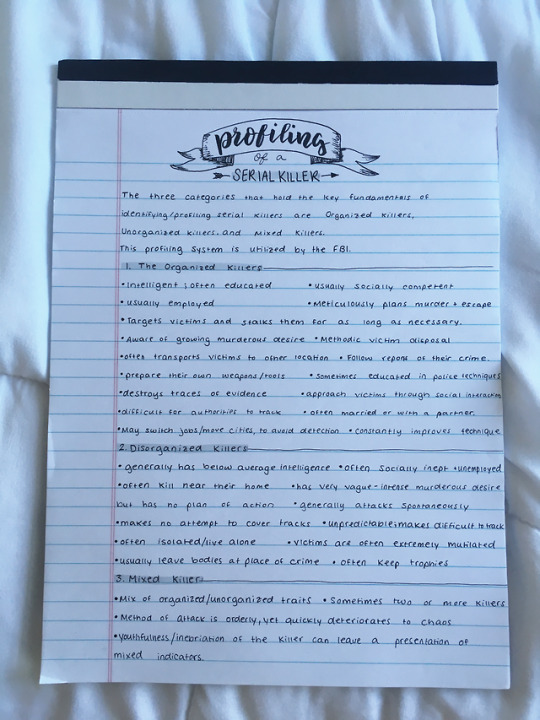 profiling
of a
SERIAL KILLER
The three categories that hold the key fundamentals of
identifying/profiling serial killers are Organized Killers,
Unorganized killers, and Mixed Killers.
This profiling system is utilized by the FBI.
1. The Organized Killers
•Intelligent ; often educated •usually socially competent
•usually employed •Meticulously plans murder + escape
•Targets victims and stalks them for as long as necessary.
•Aware of growing murderous desire •Methodic victim disposal
•often transports victims to other location •Follow reports of their crime.
•prepare their own weapons/tools •sometimes educated in police techniques
•destroys traces of evidence •approach victims through social interaction
•difficult for authorities to track •often married or with a partner.
•May switch jobs/move cities, to avoid detection •Constantly improves technique
2. Disorganized Killers
•generally has below average intelligence •often socially inept •unemployed
•often kill near their home •has very vague-intense murderous desire
but has no plan of action •generally attacks spontaneously
•makes no attempt to cover tracks •unpredictable;makes difficult to track
•often isolated/live alone •victims are often extremely mutilated
•usually leave bodies at place of crime •often keep trophies
3. Mixed Killer
•Mix of organized/unorganized traits •Sometimes two or more killers
•Method of attack is orderly, yet quickly deteriorates to chaos
•youthfulness/inebriation of the killer can leave a presentation of
mixed indicators.